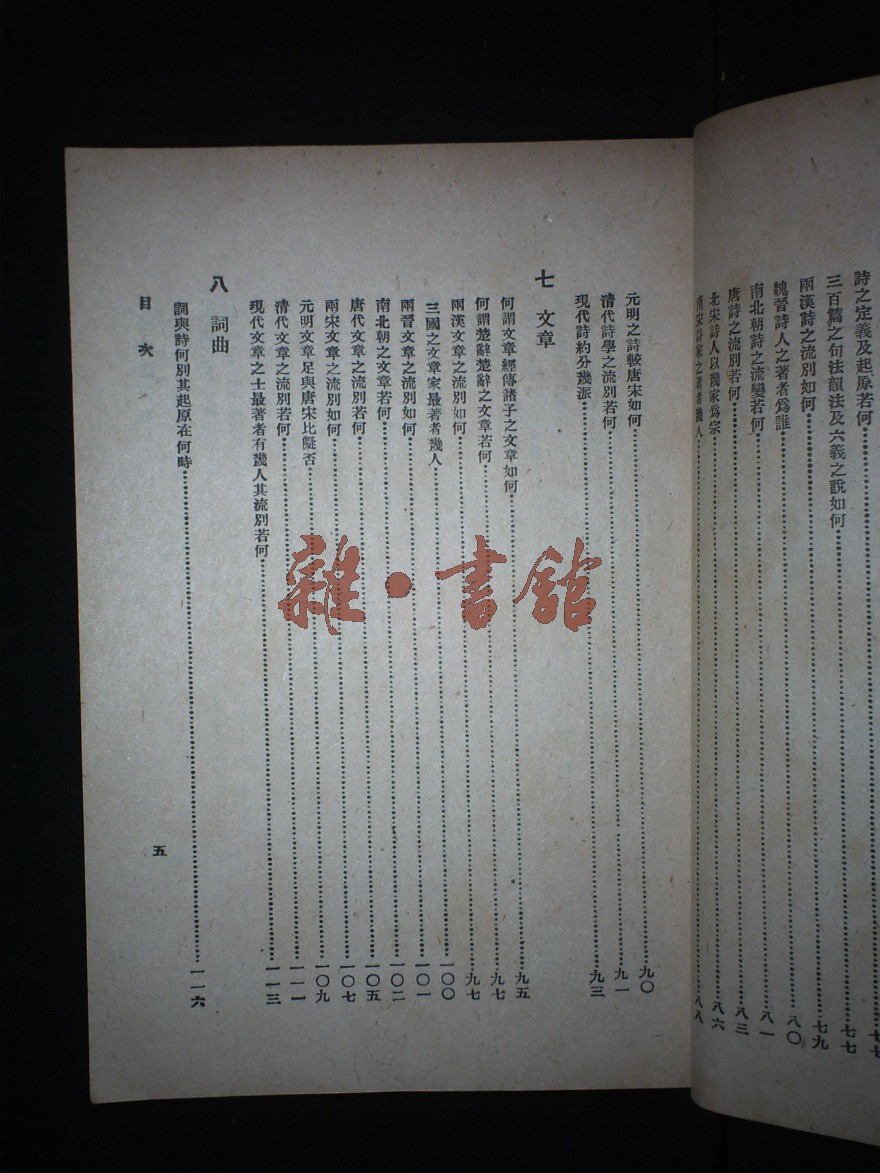 詩之定義及起原若何……七七
三百篇之句法韻法及六義之說如何……七七
兩漢詩之流別如何……七九
魏晉詩人之著者爲誰……八〇
南北朝詩之流變若何……八一
唐詩之流別若何……八三
北宋詩人以幾家爲宗……八六
南宋詩家之著者幾人……八八
元明之詩較唐宋如何……九〇
清代詩學之流別若何……九一
現代詩約分幾派……九三
七 文章
何謂文章經傳諸子之文章如何……九五
何謂楚辭楚辭之文章若何……九七
兩漢文章之流別如何……九七
三國之文章家最著者幾人……一〇〇
兩晉文章之流別如何……一〇一
南北朝之文章若何……一〇二
唐代文章之流別若何……一〇五
兩宋文章之流別如何……一〇七
元明文章足與唐宋比隆否……一〇九
清代文章之流別若何……一一一
現代文章之士最著者有幾人其流別若何……一一三
八 詞曲
詞與詩何別其起原在何時……一一六
目次
五
雜·書館